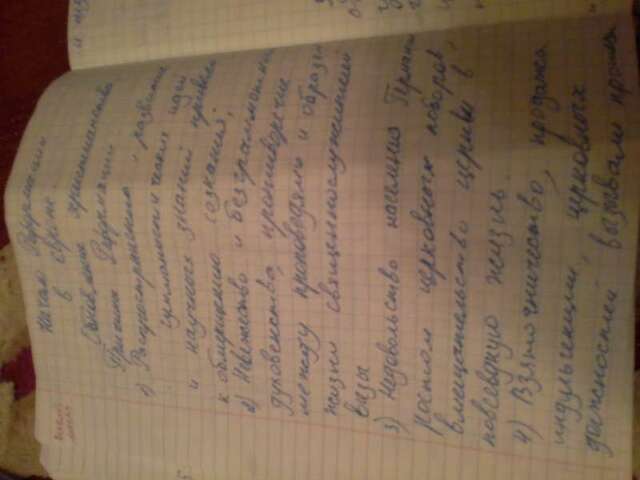 Начало Реформации
в Европе.
Обновление христианства
Причины Реформации
1) Распространение и развитие
гуманистических идей
и научных знаний привело
к обмирщению сознания;
2) Невежество и безграмотность
духовенства, противоречие
между проповедями и образом
жизни священнослужителей
3) Недовольство населения Германии
ростом церковных поборов,
вмешательство церкви в
повсевдкую жизнь.
4) Взяточничество, продажа
индульгенции, церковных
должностей вызывали
и